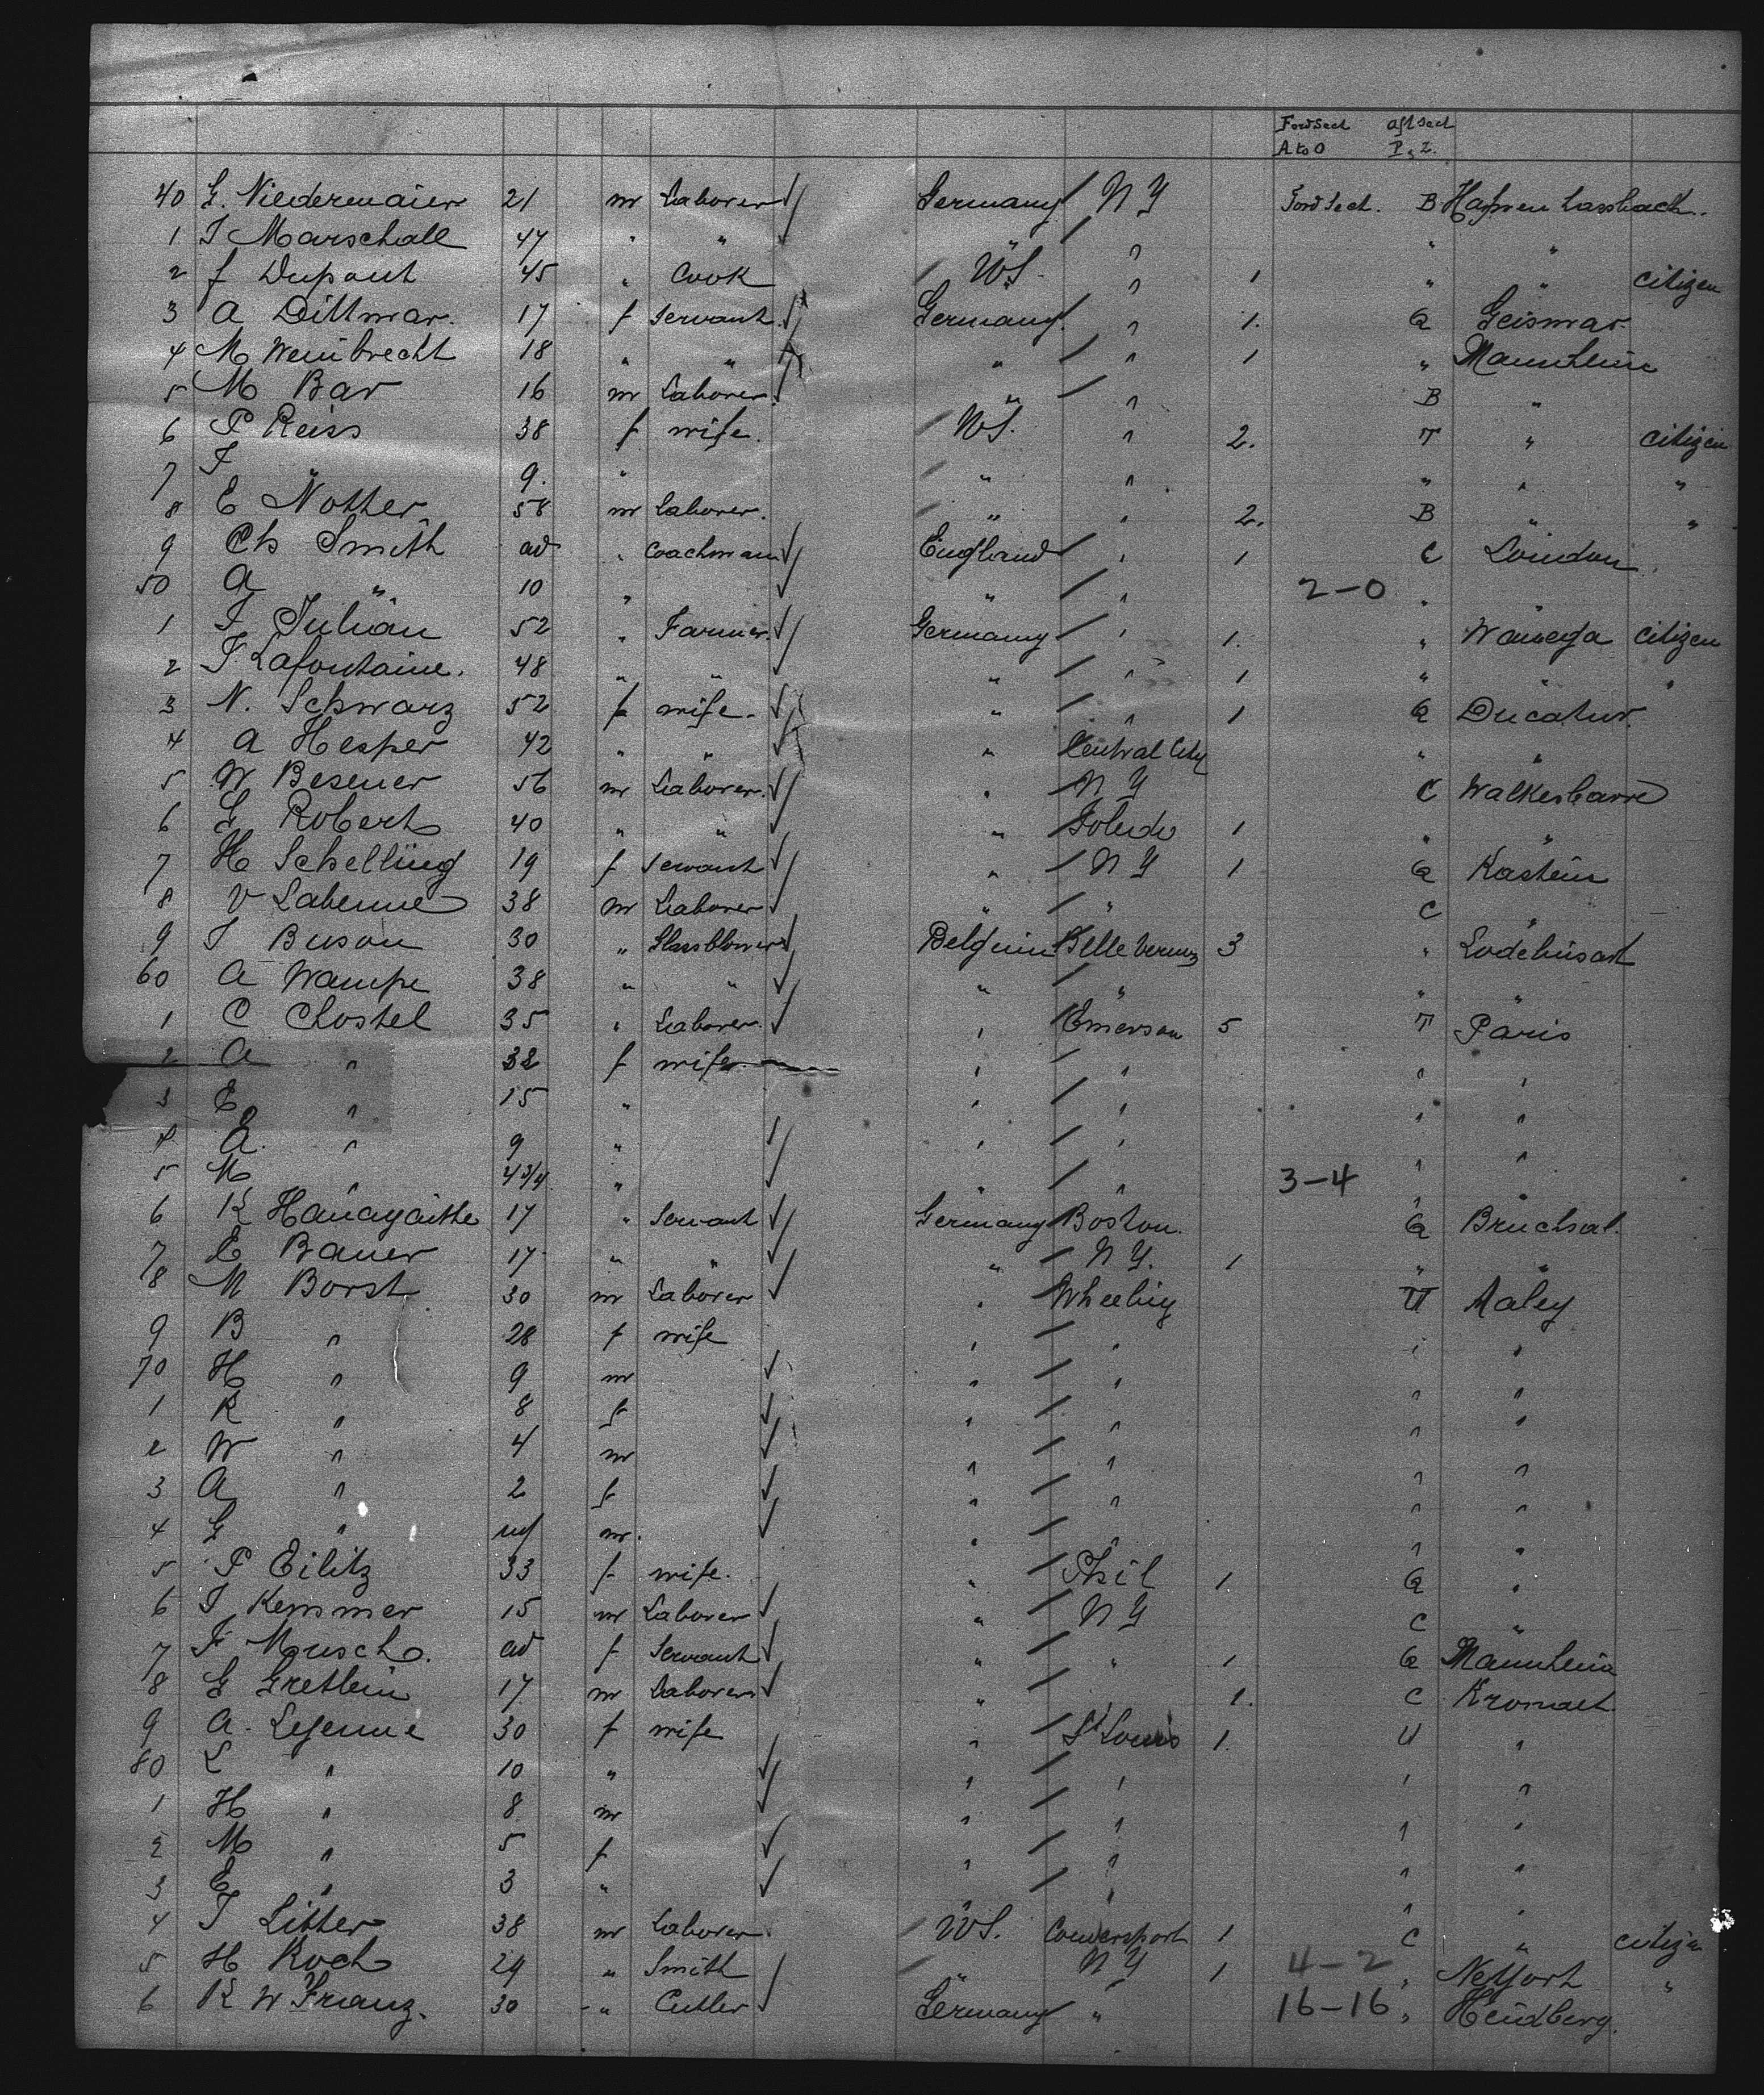 Ford Sect Aft Sect
A to O P, Z.
40 G. Niedermaier 21 m Laborer Germany N Y Ford Sect. B
1 J Marschall 47 " " " " " "
2 f Dupont 45 " Cook U S. " 1 " " citizen
3 A Dittmar. 17 f Servant. Germany " 1. G Geismar
4 M Weinbrecht 18 " " " " 1 " Mannheim
5 M Bar 16 m Laborer. " " B "
6 P Reiss 38 f wife. U S. " 2. T " citizen
7 J " 9. " " " " " "
8 E Nother 58 m Laborer. " " 2. B " "
9 Ch Smith ad " Coachman England " 1 C London
50 A " 10 " " " 2-0 " "
1 J Julian 52 " Farmer. Germany " 1. " citizen
2 J. Lafontaine. 48 " " " " 1 " " "
3 N. Schwarz 52 f wife. " " 1 G Ducatur.
4 A Hesper 42 " " " Central City " "
5 W Besener 56 m Laborer. " N Y C Walkesbarre
6 G Robert 40 " " " Toledo 1 " "
7 H Schelling 19 f Servant " N Y 1 G Kastein
8 V Labenne 38 m Laborer " " C "
9 J Buson 30 " Glassblower Belgium Belle Vernon 3 " Lodelinsart
60 A Wampe 38 " " " " " "
1 C Chostel 35 " Laborer. " Emerson 5 T Paris
2 A " 32 f wife " " " "
3 E " 15 " " " " "
4 A " 9 " " " " "
5 M " 4 3/4 " " " 3-4 " "
6 K 17 " Servant Germany Boston. G Bruchsal.
7 E Bauer 17 " " " N Y. 1 " "
8 M Borst 30 m Laborer " Wheeling U Maley
9 B " 28 f wife " " " "
70 H " 9 m " " " "
1 K " 8 f " " " "
2 W " 4 m " " " "
3 A " 2 f " " " "
4 G " inf m. " " " "
5 P Eilitz 33 f wife. " Phil 1 G "
6 J Kemmer 15 m Laborer " N Y C "
7 F Musch. ad f Servant " " 1 G Mannheim
8 G Gretlein 17 m Laborer " 1. C
9 A. Lejeune 30 f wife " St Louis 1. U "
80 L " 10 " " " " "
1 H " 8 m " " " "
2 M " 5 f " " " "
3 E " 3 " " " " "
4 J Litter 38 m Laborer. U S. 1 C " citizen
5 H Koch 29 " Smith " N Y 1 4-2 " "
6 K W Franz. 30 " Cutler Germany " 16-16 "